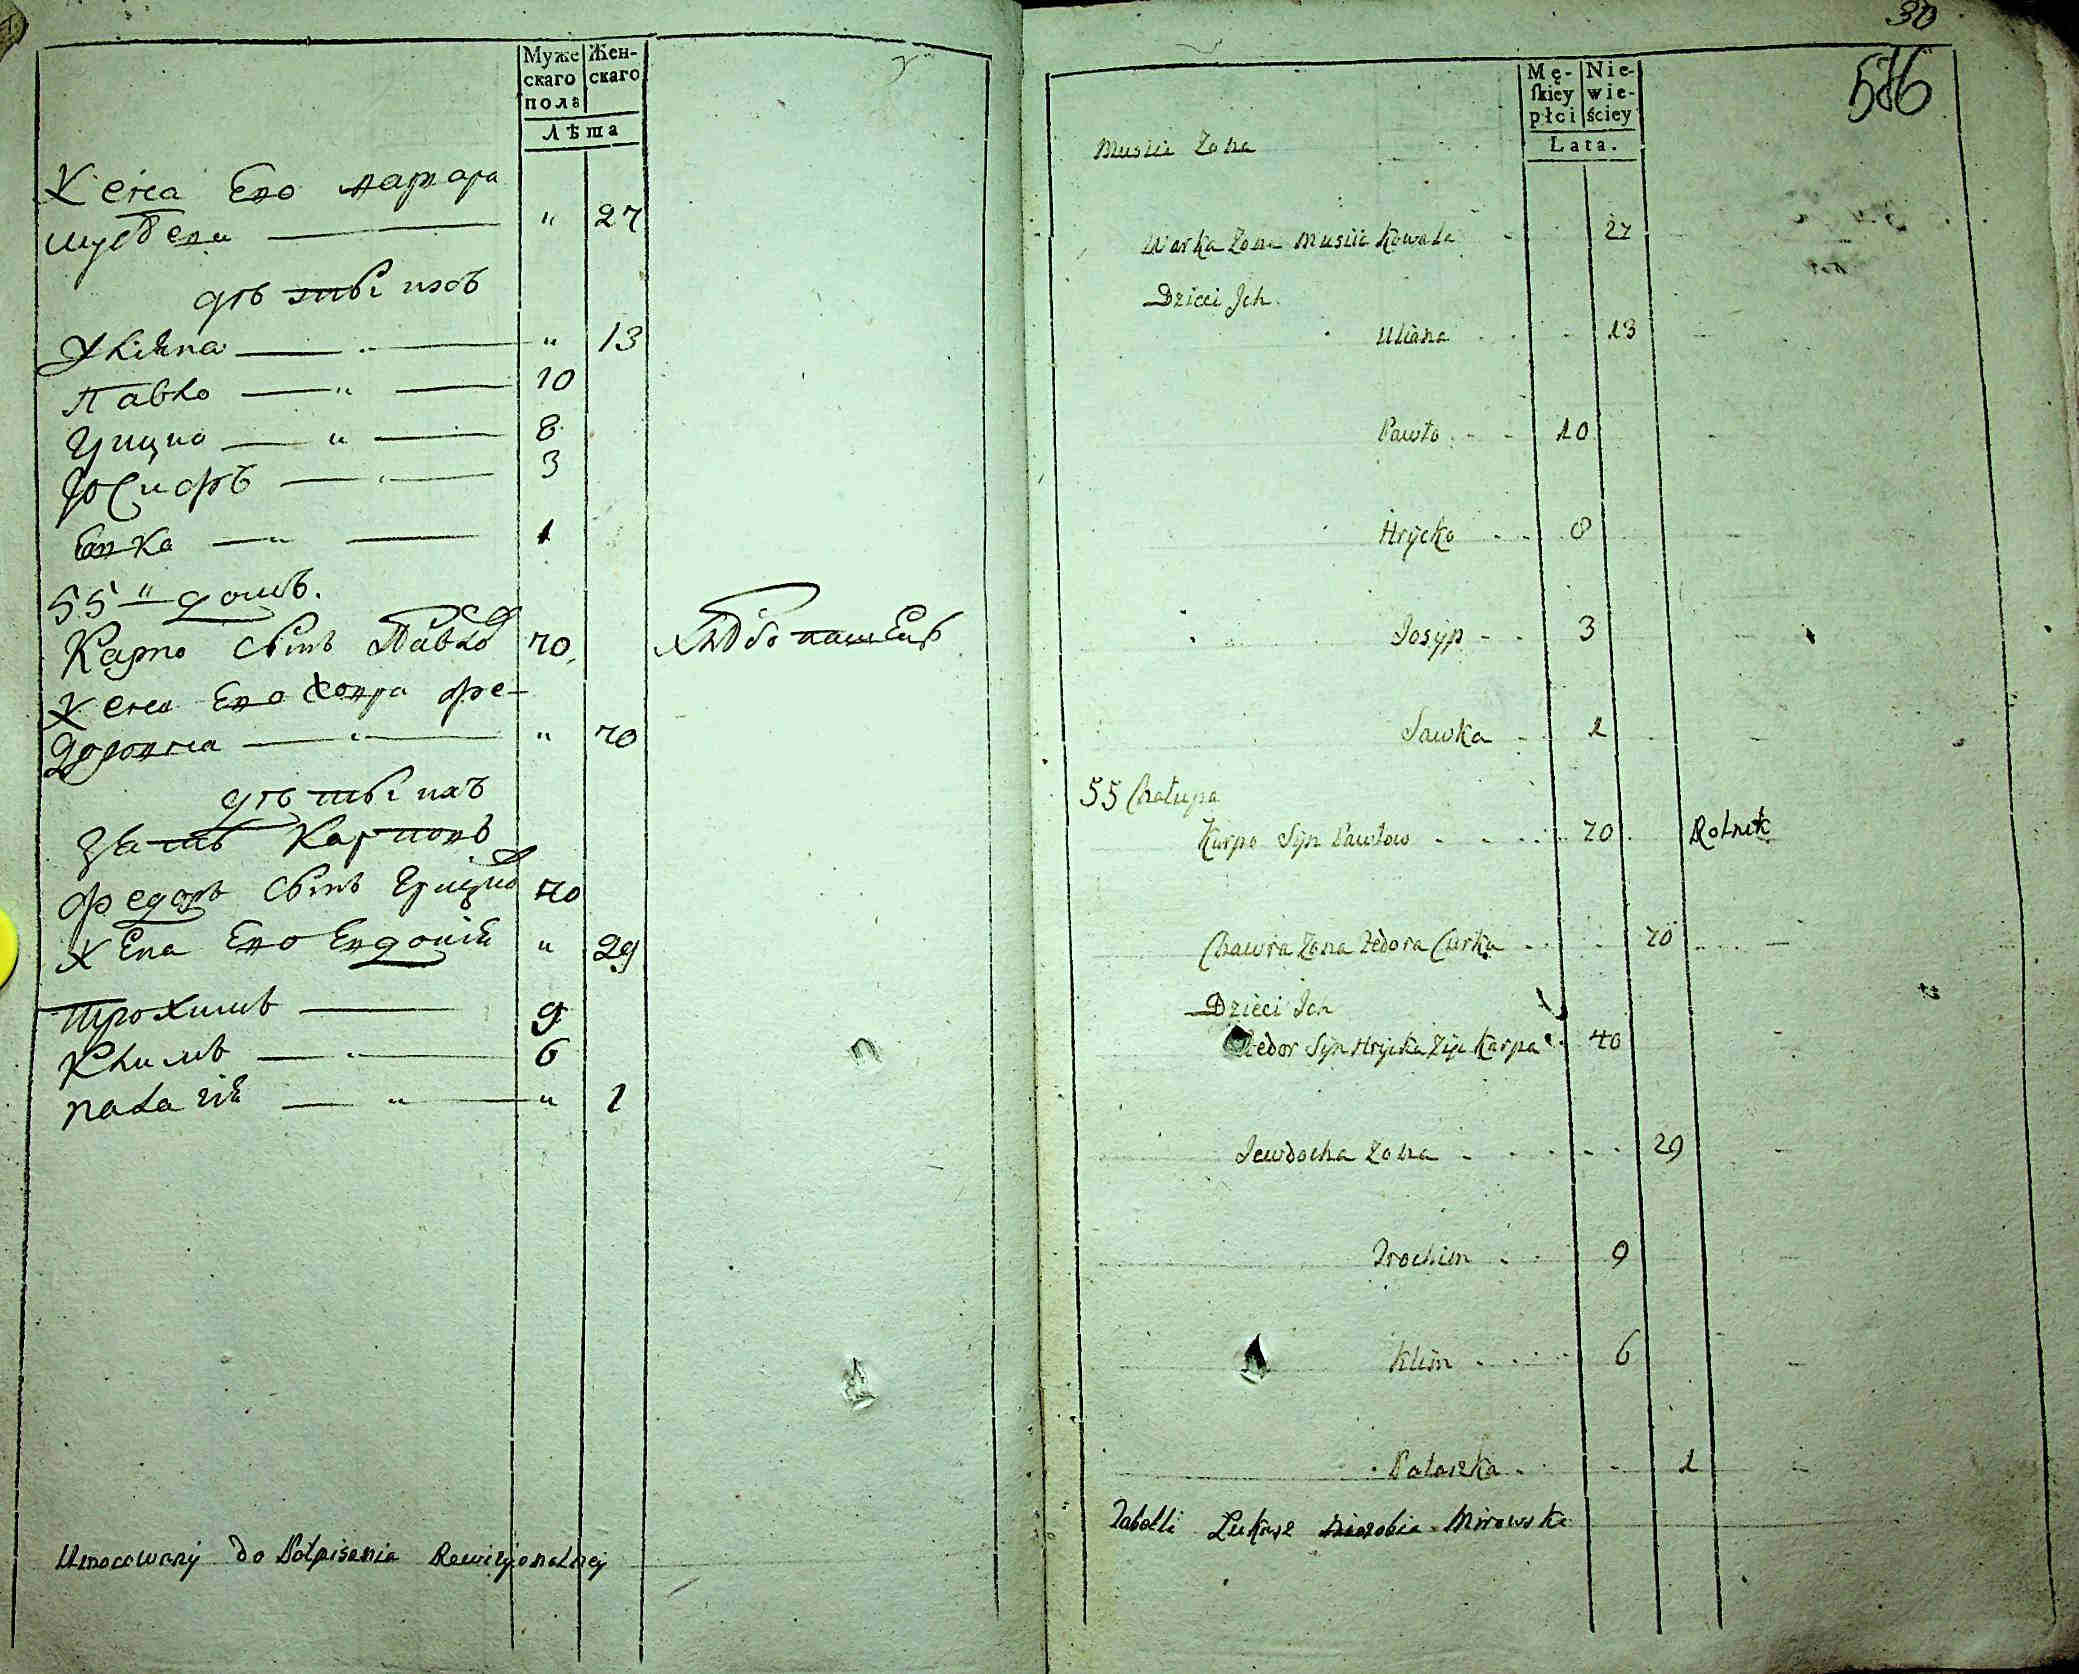 Муже
скаго
пола
Жен-
скаго
Лѣта
Жена Его варвара
" 27
дѣти ихъ
Улияна — " 13
Павло — " — 10
Грицко — " — 8
Иосифъ — 3
Савка — " — 1
55 " домъ.
Карпо сынъ Павловъ 70 хлѣбопашецъ
Жена Его Хавра Фе-
доровна — " — " 70
дѣти ихъ
Зять Карповъ
Федоръ сынъ Грицковъ 40
Жена Его Евдокия " 29
Трохимъ — 9
Климъ — " — 6
Палагия — " — " 1
Umocowany do Potpisania Rewizyonalney
30
586
Mę-
skiey
płci
Nie-
wie-
ściey
Lata.
Musiia Zona
Warka Zona Musiia Kowala 27
Dzieci Ich
Uliana 13
Pawło 10
Hrycko 8
Josyp 3
Sawka 1
55 Chałupa
Karpo Syn Pawłow 70 Rolnik
Chawra Zona Fedora Curka 70
Dzieci Ich
Fedor Syn Hrycka Zięc Karpa 40
Jewdocha Zona 29
Trochim 9
Klim 6
Pałaszka 1
Tabelli Łukasz Mirowski